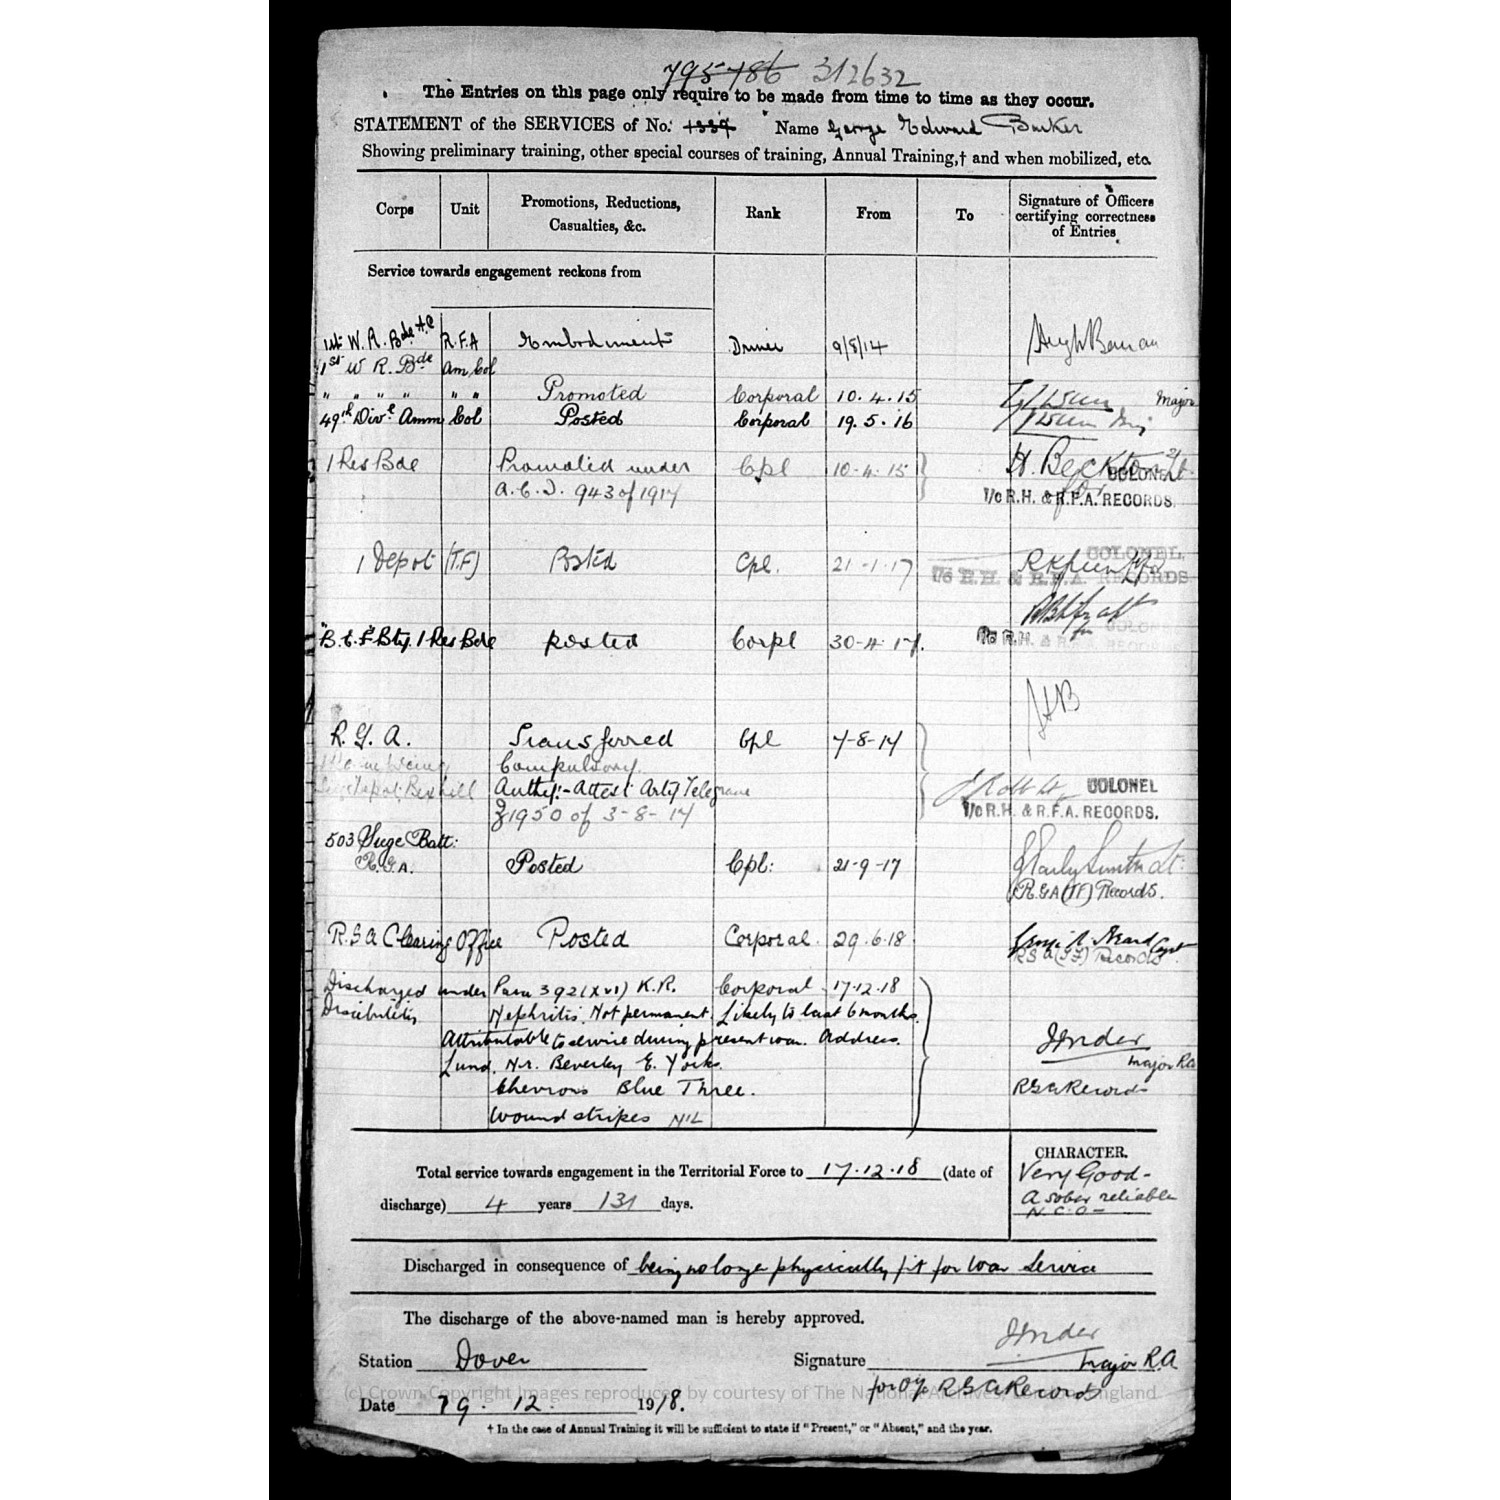 795786 312632
The Entries on this page only require to be made from time to time as they occur.
STATEMENT of the SERVICES of No. 1337 Name George Edward Barker
Showing preliminary training, other special courses of training, Annual Training,† and when mobilized, etc.
Corps Unit Promotions, Reductions, Casualties, &c. Rank From To Signature of Officers certifying correctness of Entries
Service towards engagement reckons from
1st W. R. Bde A.C R.F.A Embodiment Driver 9/8/14
1st W R. Bde Am Col
" " " " " " Promoted Corporal 10.4.15 Major
49th Divl Amm Col Posted Corporal 19.5.16
1 Res Bde Promoted under Cpl 10-4-15 H. Beckton Lt
A.C.I. 943 of 1917 COLONEL
I/c R.H. & R.F.A. RECORDS.
1 Depot (T.F) Posted Cpl. 21-1-17 COLONEL.
I/c R.H. & R.F.A. RECORDS
"B.C.F" Bty. 1 Res Bde posted Corpl 30-4-17. COLONEL
I/c R.H. & R.F.A. RECORDS
R. G. A. Transferred Cpl 7-8-17
Compulsory.
Siege Depot, Bexhill Authy:- Attest Arty Telegram COLONEL
Z1950 of 3-8-17 I/c R.H. & R.F.A. RECORDS.
503 Siege Batt:
R.G.A. Posted Cpl: 21-9-17 Smith Lt:
(R.G.A (TF) Records.
R.G.A Clearing Office Posted Corporal. 29.6.18 Capt
RGA (TF) Records
Discharged under Para 392 (xvi) K.R. Corporal 17.12.18
Disabilities, Nephritis. Not permanent. Likely to last 6 months.
Attributable to service during present war. Address.
Lund, Nr. Beverley E. Yorks. Major RA
Chevrons Blue Three. RGA Records
Wound stripes NIL
Total service towards engagement in the Territorial Force to 17.12.18 (date of
discharge) 4 years 131 days.
CHARACTER.
Very Good-
A sober reliable
N.C.O-
Discharged in consequence of being no longer physically fit for War Service
The discharge of the above-named man is hereby approved.
Station Dover Signature Major R.A
for O/c RGA Records
(c) Crown Copyright Images reproduced by courtesy of The National Archives, London, England
Date 19. 12. 1918.
† In the case of Annual Training it will be sufficient to state if "Present," or "Absent," and the year.